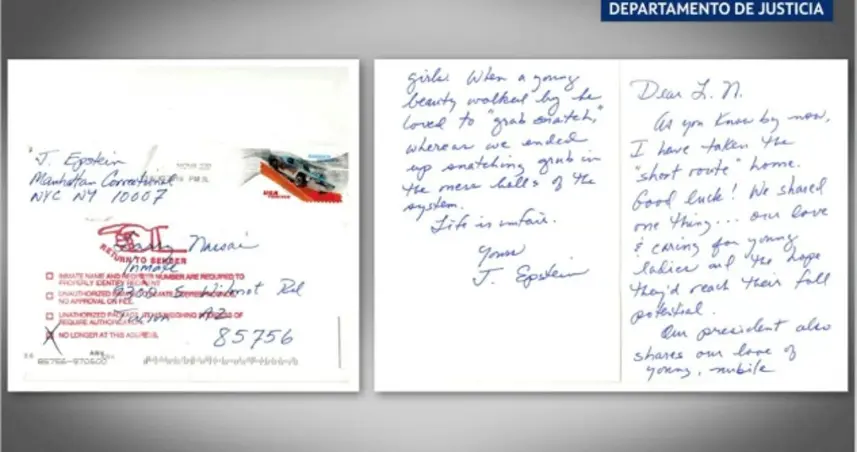 DEPARTAMENTO DE JUSTICIA
J. Epstein
Manhattan Correctional
NYC NY 10007
USA
RETURN TO SENDER
Larry Nassar
Inmate
9300 S. Wilmot Rd
Tucson AZ
85756
INMATE NAME AND REGISTER NUMBER ARE REQUIRED TO
PROPERLY IDENTIFY RECIPIENT
UNAUTHORIZED
NO APPROVAL ON FILE.
UNAUTHORIZED PACKAGE
REQUIRE AUTHORIZATION.
NO LONGER AT THIS ADDRESS.
85756-970600
girls. When a young
beauty walked by he
loved to "grab snatch,"
whereas we ended
up snatching grub in
the mess halls of the
system.
Life is unfair.
Yours
J. Epstein
Dear L. N.
As you know by now,
I have taken the
"short route" home.
Good luck! We shared
one thing... our love
& caring for young
ladies and the hope
they'd reach their full
potential.
Our president also
shares our love of
young, nubile